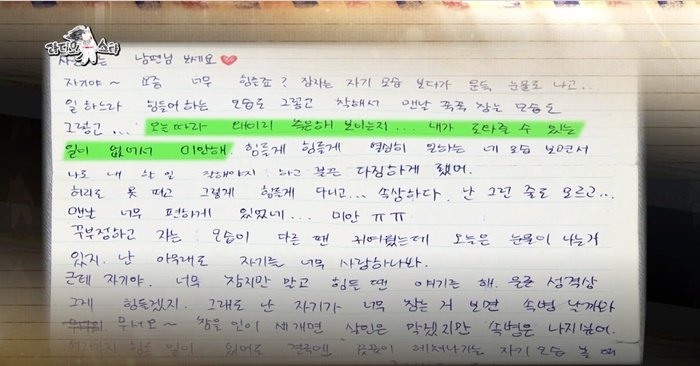 라디오 스타
사랑하는 남편님 보세요
자기야~ 요즘 너무 힘들죠? 잠자는 자기 모습 보다가 문득 눈물도 나고...
일 하느라 힘들어하는 모습도 그렇고 착해서 맨날 꾹꾹 참는 모습도
그렇고... 오늘따라 왜이리 측은해 보이는지... 내가 도와줄 수 있는
일이 없어서 미안해. 힘들게 힘들게 열심히 일하는 네 모습 보면서
나도 내 할 일 잘해야지! 하고 불끈 다짐하게 됐어.
허리도 못 펴고 그렇게 힘들게 다니고... 속상하다. 난 그런 줄도 모르고...
맨날 너무 편하게 있었네... 미안 ㅠㅠ
꾸부정하고 자는 모습이 다른 땐 귀여웠는데 오늘은 눈물이 나는거
있지. 난 아무래도 자기를 너무 사랑하나봐.
근데 자기야. 너무 참지만 말고 힘든 땐 얘기도 해. 물론 성격상
그게 힘들겠지. 그래도 난 자기가 너무 참는 거 보면 속병 날까봐
무서요~ 참을 인이 세개면 살인은 막겠지만 속병은 나지싶어.
힘든 일이 있어도 결국엔 꿋꿋이 헤쳐나가는 자기 모습 볼 때